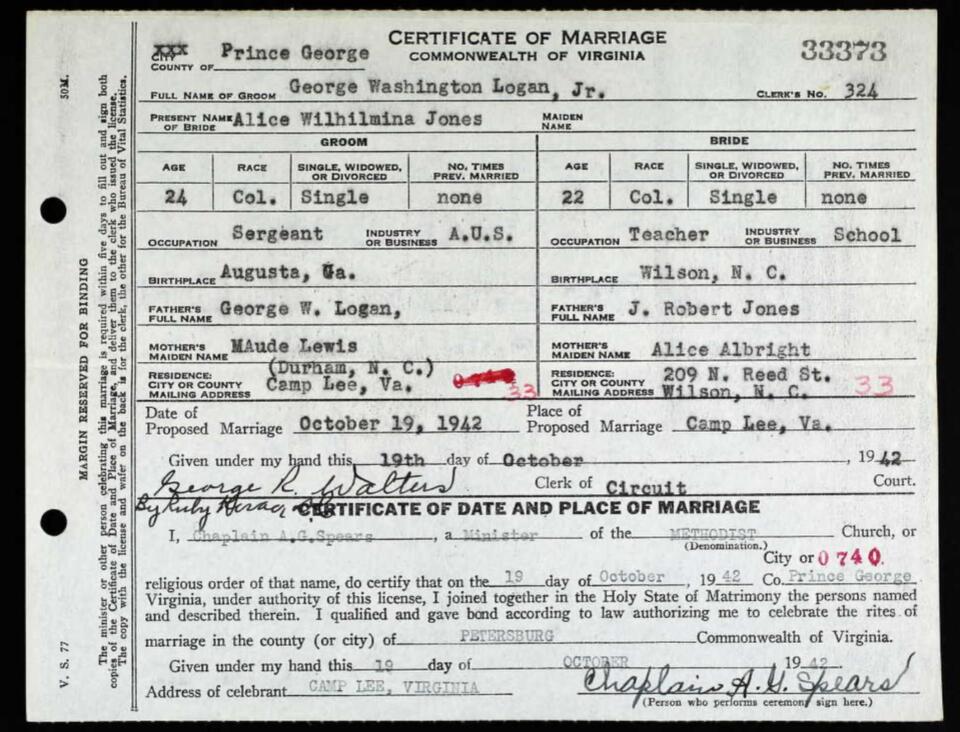 CERTIFICATE OF MARRIAGE
COMMONWEALTH OF VIRGINIA
33373
XXX
CITY
COUNTY OF Prince George
FULL NAME OF GROOM George Washington Logan, Jr. CLERK'S NO. 324
PRESENT NAME OF BRIDE Alice Wilhilmina Jones MAIDEN NAME
GROOM BRIDE
AGE RACE SINGLE, WIDOWED, OR DIVORCED NO. TIMES PREV. MARRIED AGE RACE SINGLE, WIDOWED, OR DIVORCED NO. TIMES PREV. MARRIED
24 Col. Single none 22 Col. Single none
OCCUPATION Sergeant INDUSTRY OR BUSINESS A.U.S. OCCUPATION Teacher INDUSTRY OR BUSINESS School
BIRTHPLACE Augusta, Ga. BIRTHPLACE Wilson, N. C.
FATHER'S FULL NAME George W. Logan, FATHER'S FULL NAME J. Robert Jones
MOTHER'S MAIDEN NAME MAude Lewis MOTHER'S MAIDEN NAME Alice Albright
RESIDENCE: CITY OR COUNTY MAILING ADDRESS (Durham, N. C.) Camp Lee, Va. 33 RESIDENCE: CITY OR COUNTY MAILING ADDRESS 209 N. Reed St. Wilson, N. C. 33
Date of Proposed Marriage October 19, 1942 Place of Proposed Marriage Camp Lee, Va.
Given under my hand this 19th day of October, 1942
George R. Walters Clerk of Circuit Court.
By Ruby
CERTIFICATE OF DATE AND PLACE OF MARRIAGE
I, Chaplain A.G.Spears, a Minister of the METHODIST Church, or
(Denomination.)
City or 0740.
religious order of that name, do certify that on the 19 day of October, 1942 Co. Prince George
Virginia, under authority of this license, I joined together in the Holy State of Matrimony the persons named
and described therein. I qualified and gave bond according to law authorizing me to celebrate the rites of
marriage in the county (or city) of PETERSBURG Commonwealth of Virginia.
Given under my hand this 19 day of OCTOBER 1942
Address of celebrant CAMP LEE, VIRGINIA Chaplain A. G. Spears
(Person who performs ceremony sign here.)
V. S. 77
50M.
MARGIN RESERVED FOR BINDING
The minister or other person celebrating this marriage is required within five days to fill out and sign both
copies of the Certificate of Date and Place of Marriage, and deliver them to the clerk who issued the license.
The copy with the license and wafer on the back is for the clerk, the other for the Bureau of Vital Statistics.